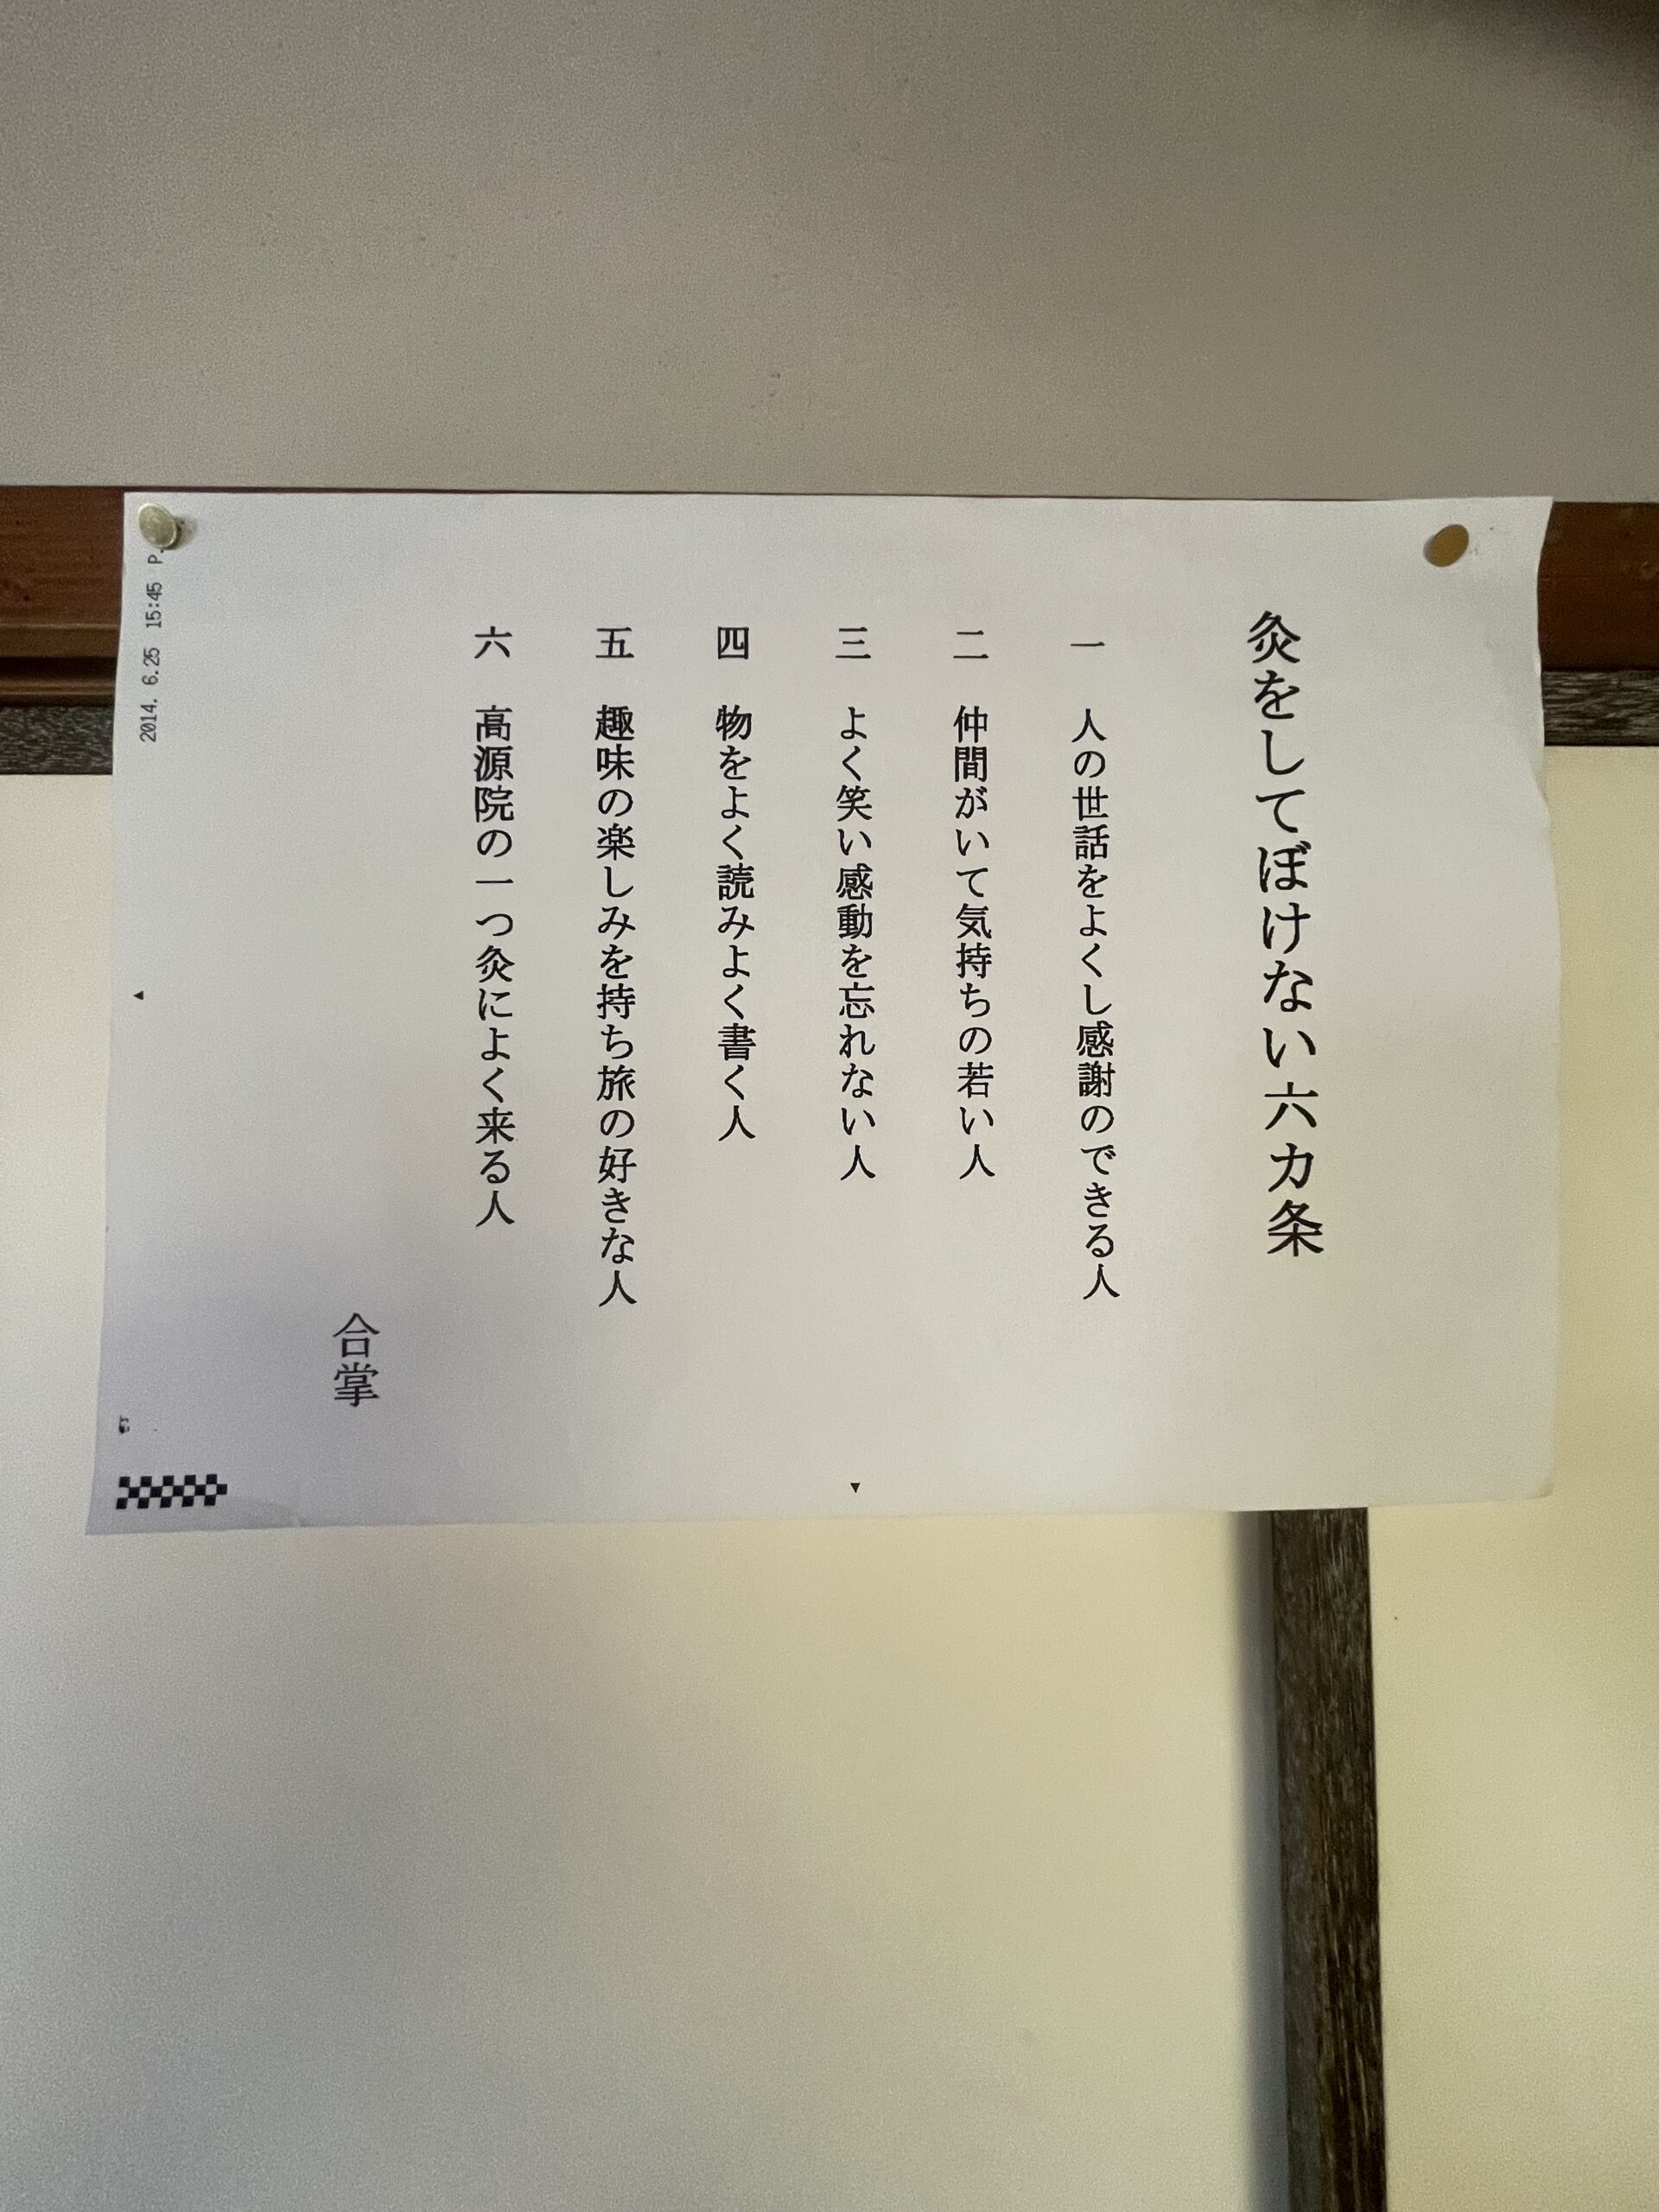 灸をしてぼけない六カ条
一 人の世話をよくし感謝のできる人
二 仲間がいて気持ちの若い人
三 よく笑い感動を忘れない人
四 物をよく読みよく書く人
五 趣味の楽しみを持ち旅の好きな人
六 高源院の一つ灸によく来る人
合掌
2014. 6.25 15:45 P.